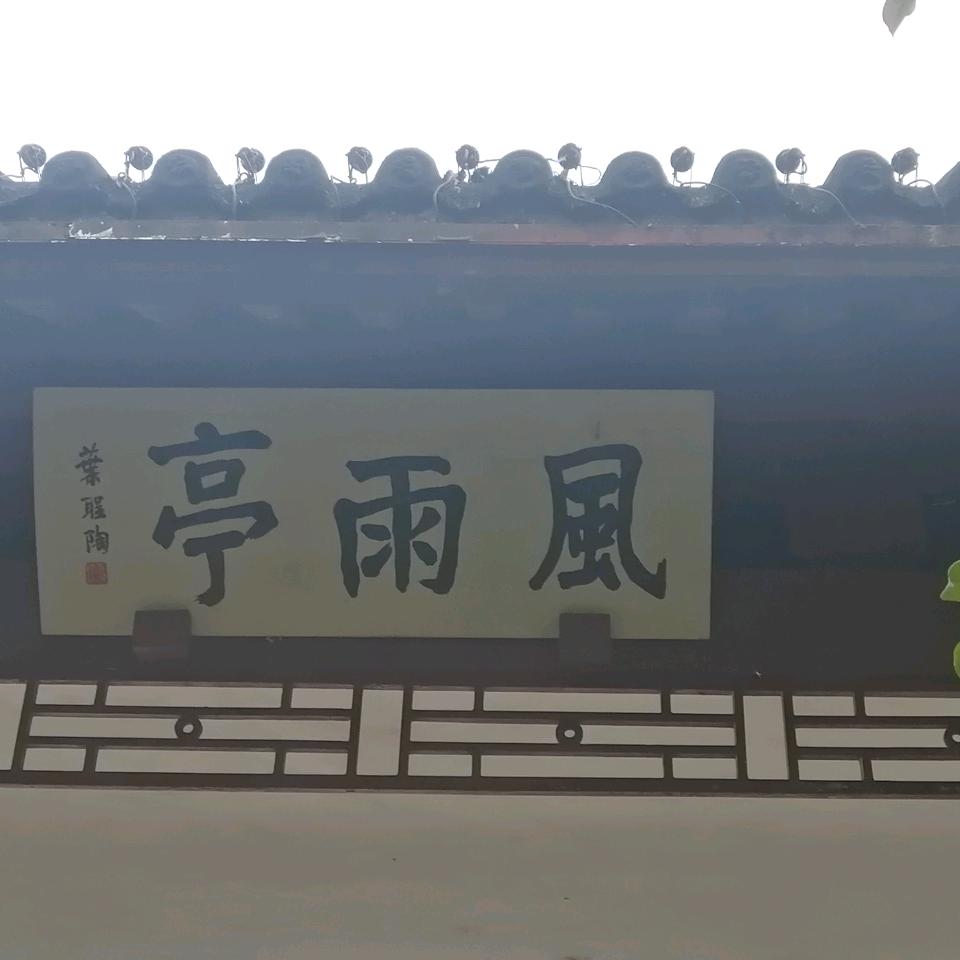 風雨亭
葉聖陶